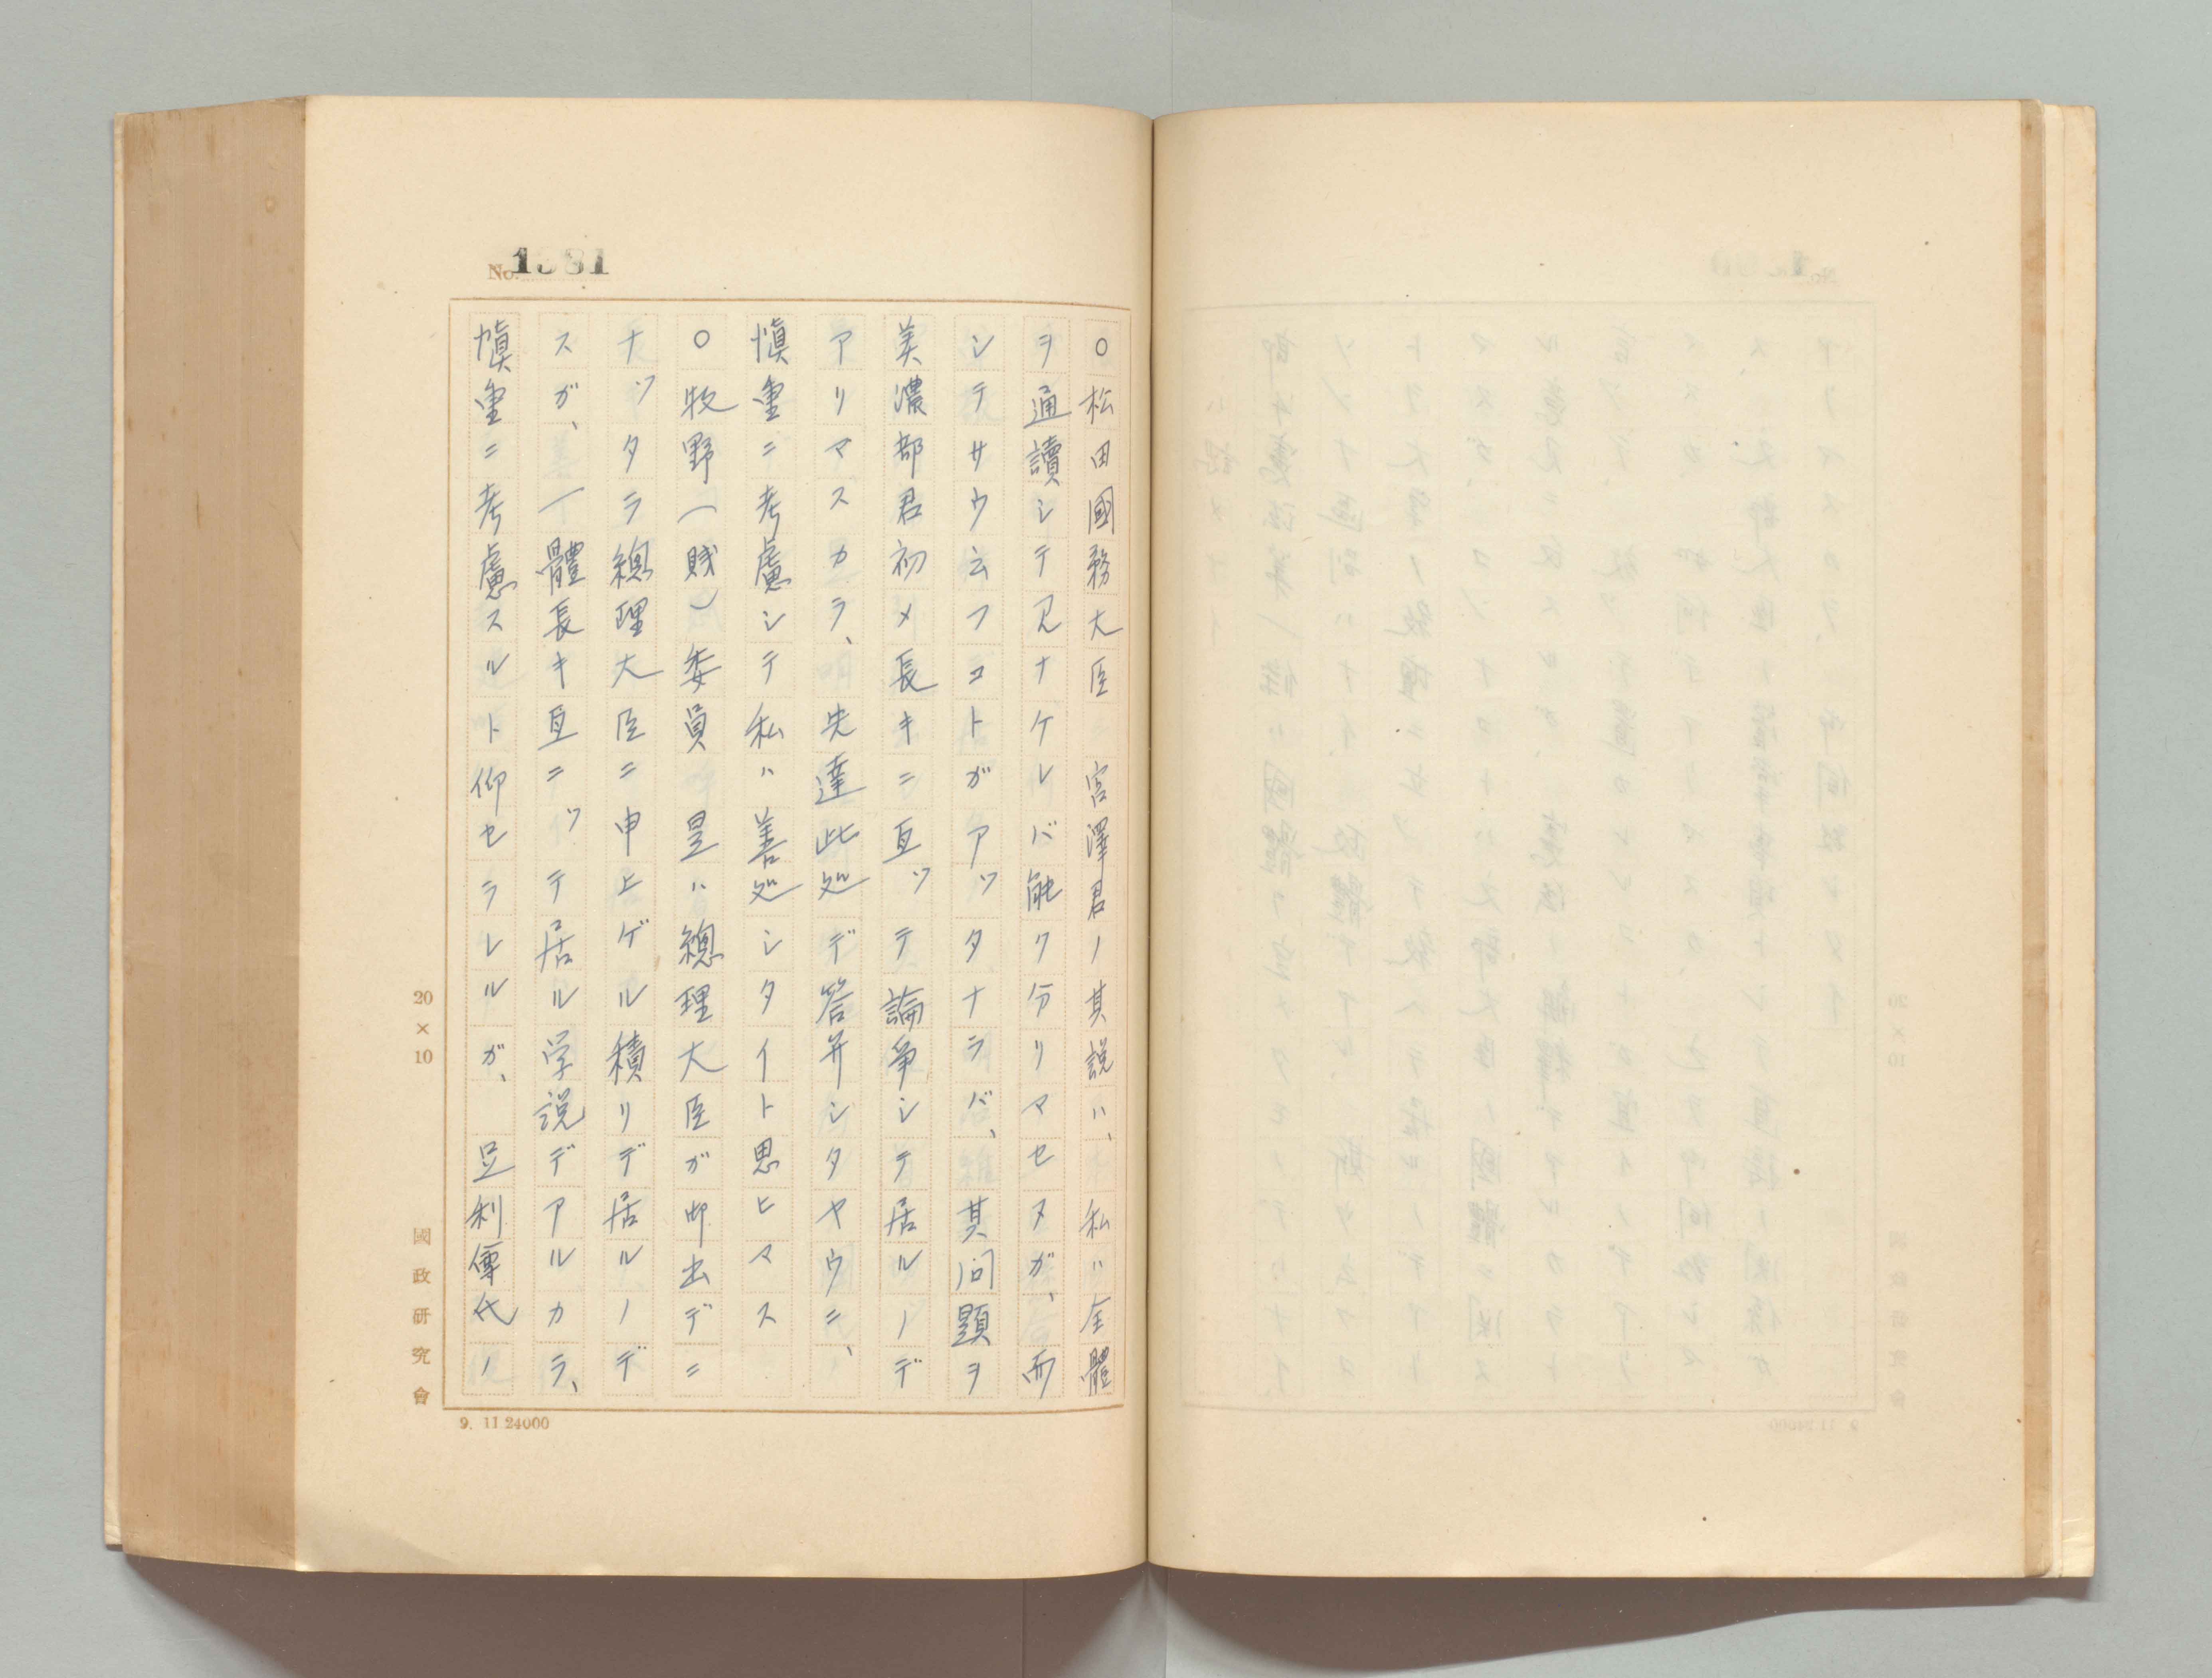 No. 1381
〇松田國務大臣　宮澤君ノ其説ハ、私ハ全體
ヲ通讀シテ見ナケレバ能ク分リマセヌガ、而
シテサウ云フコトガアッタナラバ、其問題ヲ
美濃部君初メ長キニ亙ッテ論爭シテ居ルノデ
アリマスカラ、先達此処デ答弁シタヤウニ、
愼重ニ考慮シテ私ハ善処シタイト思ヒマス
〇牧野（賤）委員　是ハ總理大臣ガ御出デニ
ナッタラ總理大臣ニ申上ゲル積リデ居ルノデ
スガ、一體長キ亙ニッテ居ル学説デアルカラ、
愼重ニ考慮スルト仰セラレルガ、足利時代ノ
20×10
國政研究會
9. 11 24000